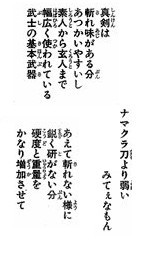 真剣は
斬れ味がある分
あつかいやすいし
素人から玄人まで
幅広く使われている
武士の基本武器
ナマクラ刀より弱い
みてェなもん
あえて斬れない様に
鋭く研がない分
硬度と重量を
かなり増加させて